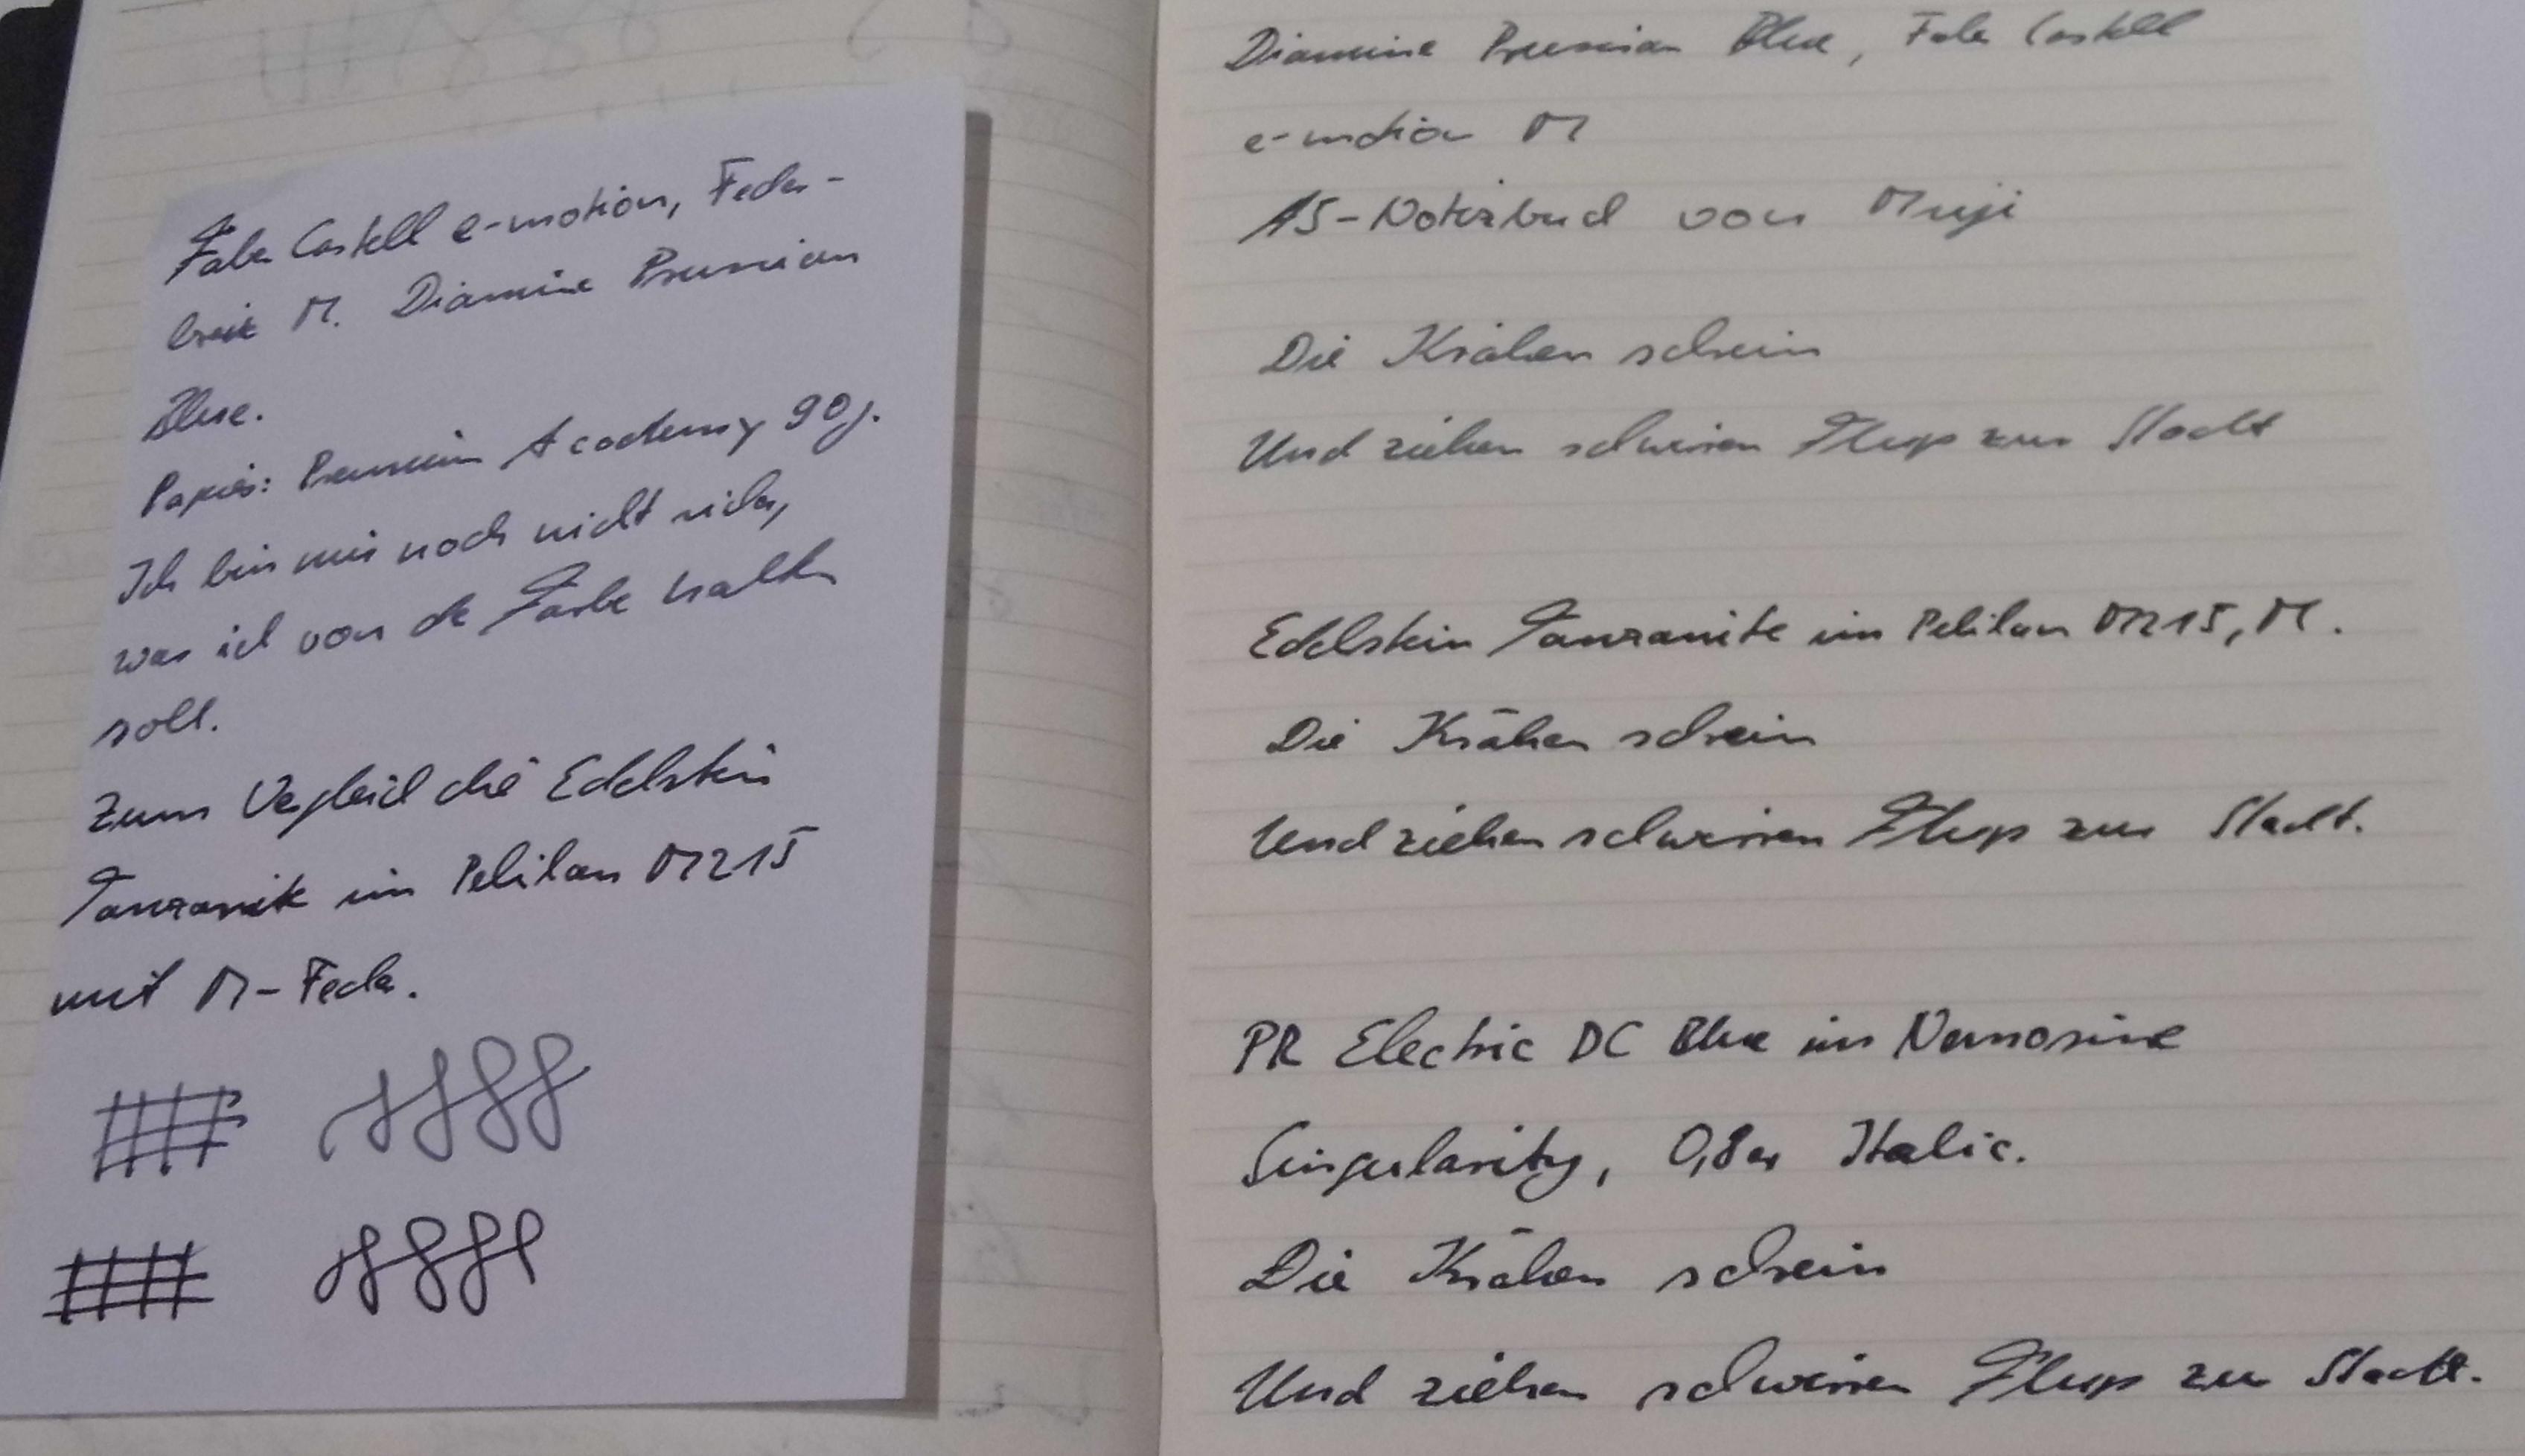 Faber Castell e-motion, Feder-
breite M. Diamine Prussian
Blue.
Papier: Premium Academy 90g.
Ich bin mir noch nicht sicher,
was ich von der Farbe halten
soll.
Zum Vergleich die Edelstein
Tanzanite im Pelikan M215
mit M-Feder.
Diamine Prussian Blue, Faber Castell
e-motion M
A5-Notizbuch von Muji
Die Krähen schrein
Und ziehen schwirren Flugs zur Stadt
Edelstein Tanzanite im Pelikan M215, M.
Die Krähen schrein
Und ziehen schwirren Flugs zur Stadt.
PR Electric DC Blue im Nemosine
Singularity, 0,8er Italic.
Die Krähen schrein
Und ziehen schwirren Flugs zur Stadt.